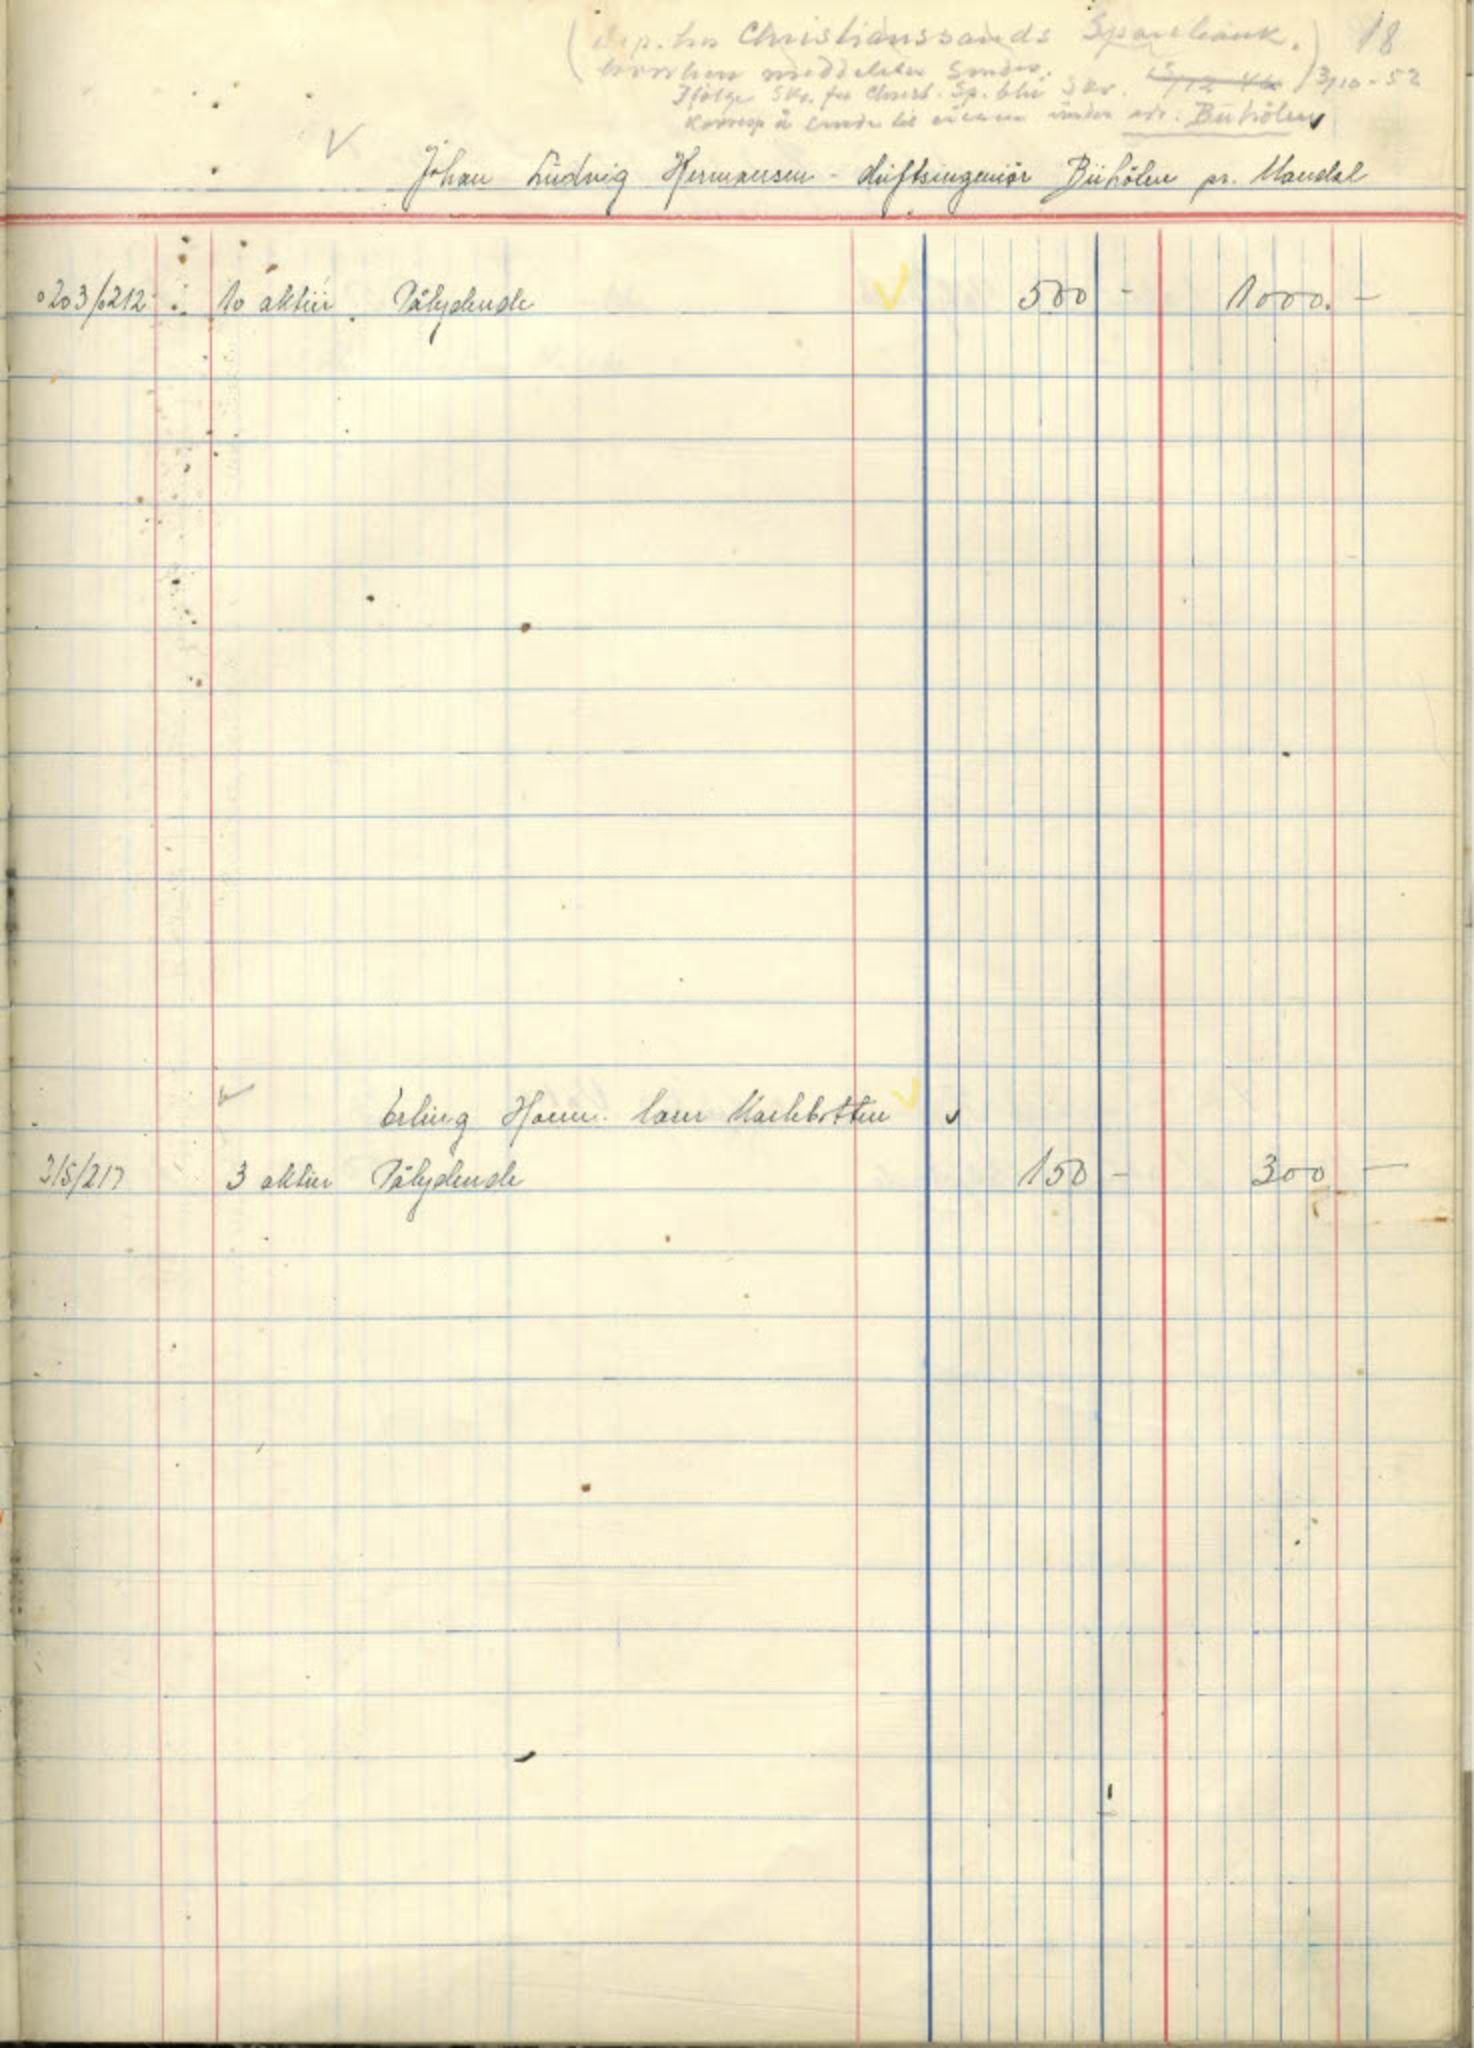 (Dep. hos Christianssands Sparebank.) 18
hvorhen meddelelser sendes.
Ifølge Skr. fra Christ. Sp. blir 3/10-52
Korresp å sende til under adr. Buhölen
Johan Ludvig Hermansen - driftsingeniør Buhölen pr. Mandal
0203/0212 10 aktier Pålydende 500 - 1000. -
Erling Hann.
215/217 3 aktier Pålydende 150 - 300 -